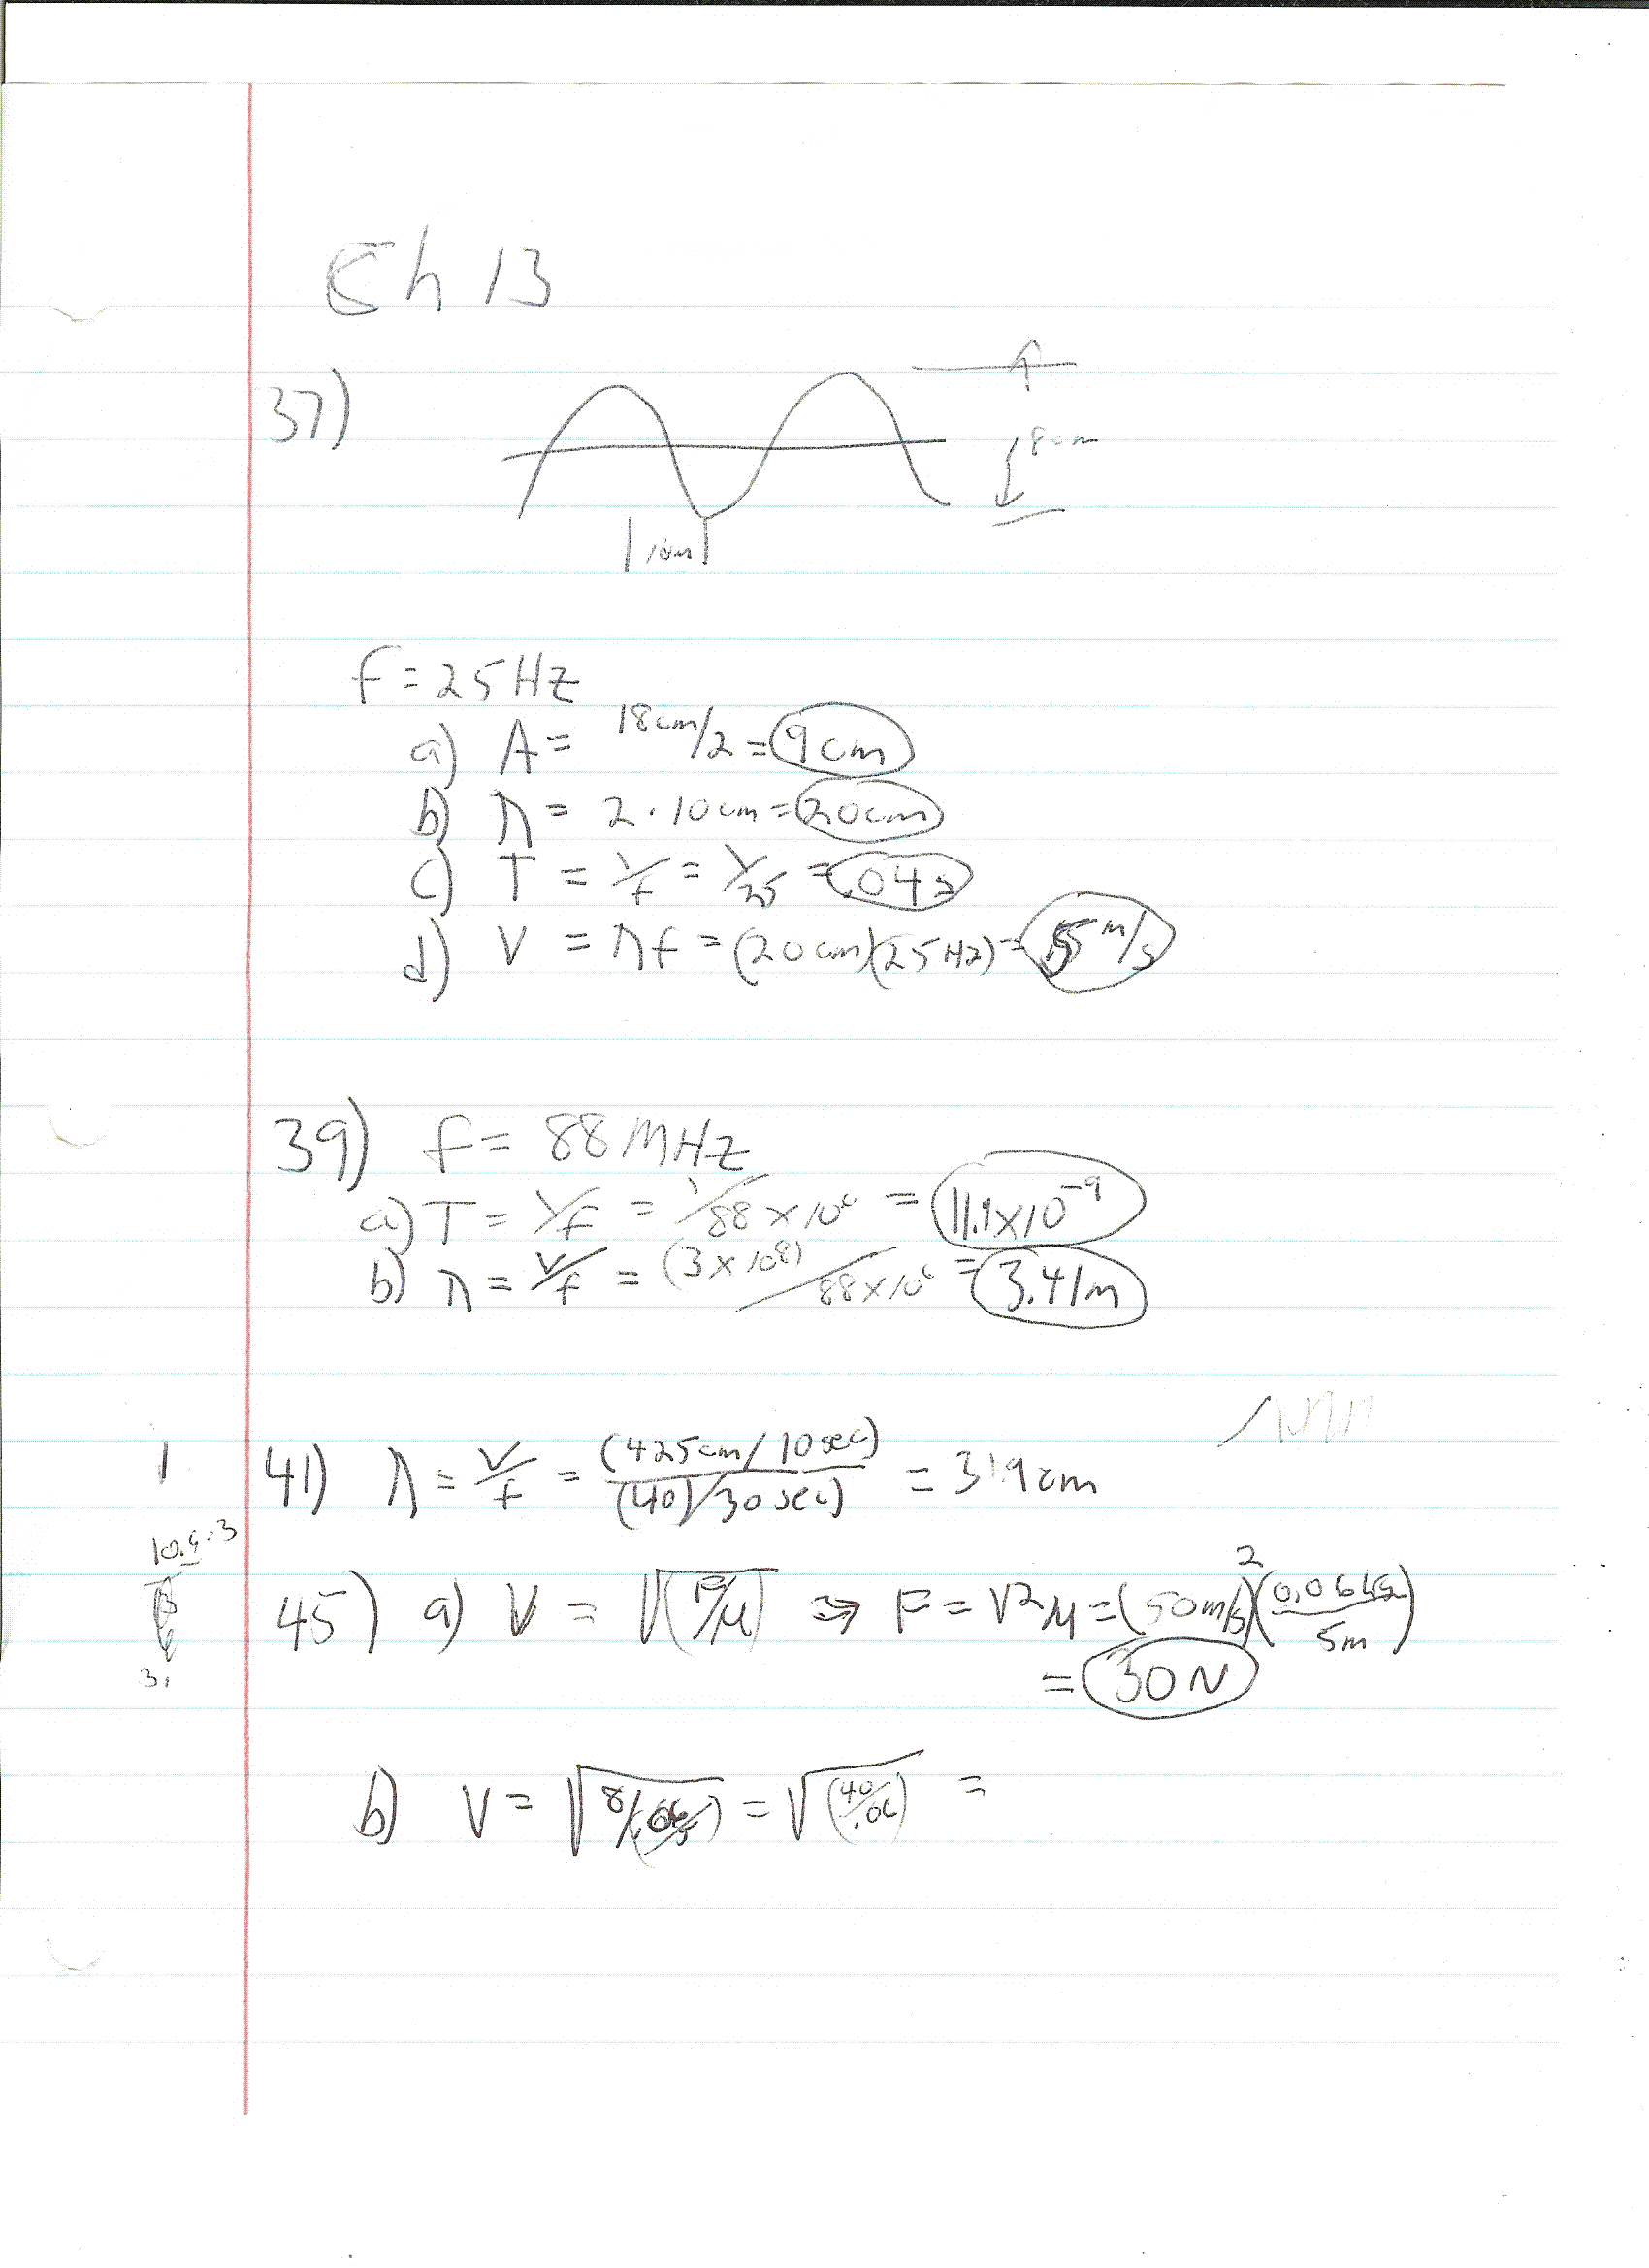 Ch 13
37)
18cm
10cm
f = 25 Hz
a) A = 18cm/2 = 9cm
b) λ = 2 · 10cm = 20cm
c) T = 1/f = 1/25 = .04s
d) V = λf = (20cm)(25Hz) = 5 m/s
39) f = 88 MHz
a) T = 1/f = 1/88 × 10⁶ = 11.4 × 10⁻⁹
b) λ = V/f = (3 × 10⁸)/88 × 10⁶ = 3.41m
1
41) λ = V/f = (425cm/10sec)/(40)/30sec) = 31.9cm
3.
45) a) V = √(F/μ) ⇒ F = V²μ = (50m/s)²(0.06kg/5m)
= 30N
b) V = √8/(.06/5) = √(40/.06) =